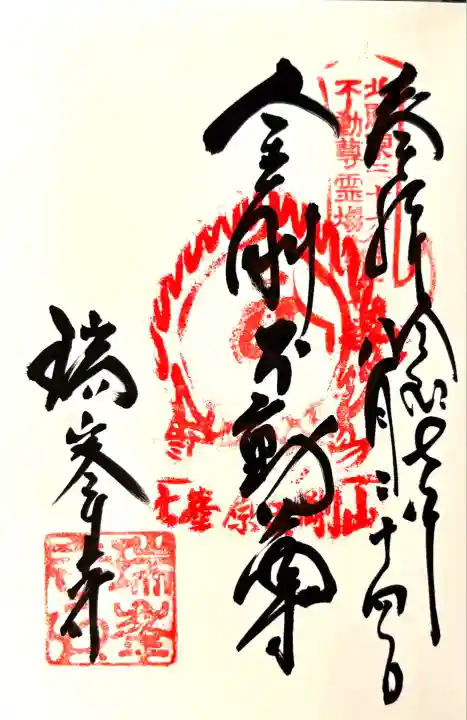 奉拝
令和七年
八月二十四日
北関東三十六
不動尊霊場
金剛不動尊
瑞峯寺
瑞峯
寺印